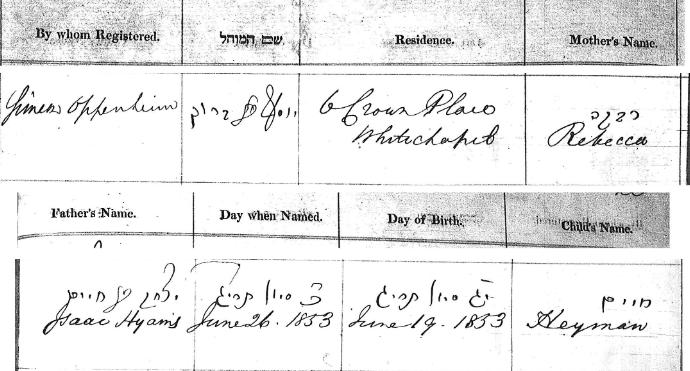 By whom Registered. שם המוהל Residence. Mother's Name.
Simeon Oppenheim יוסף בן ברוך 6 Crown Place רבקה
Whitechapel Rebecca
Father's Name. Day when Named. Day of Birth. Child's Name.
יצחק בן חיים כ סיון תריג יג סיון תריג חיים
Isaac Hyams June 26. 1853 June 19. 1853 Heyman